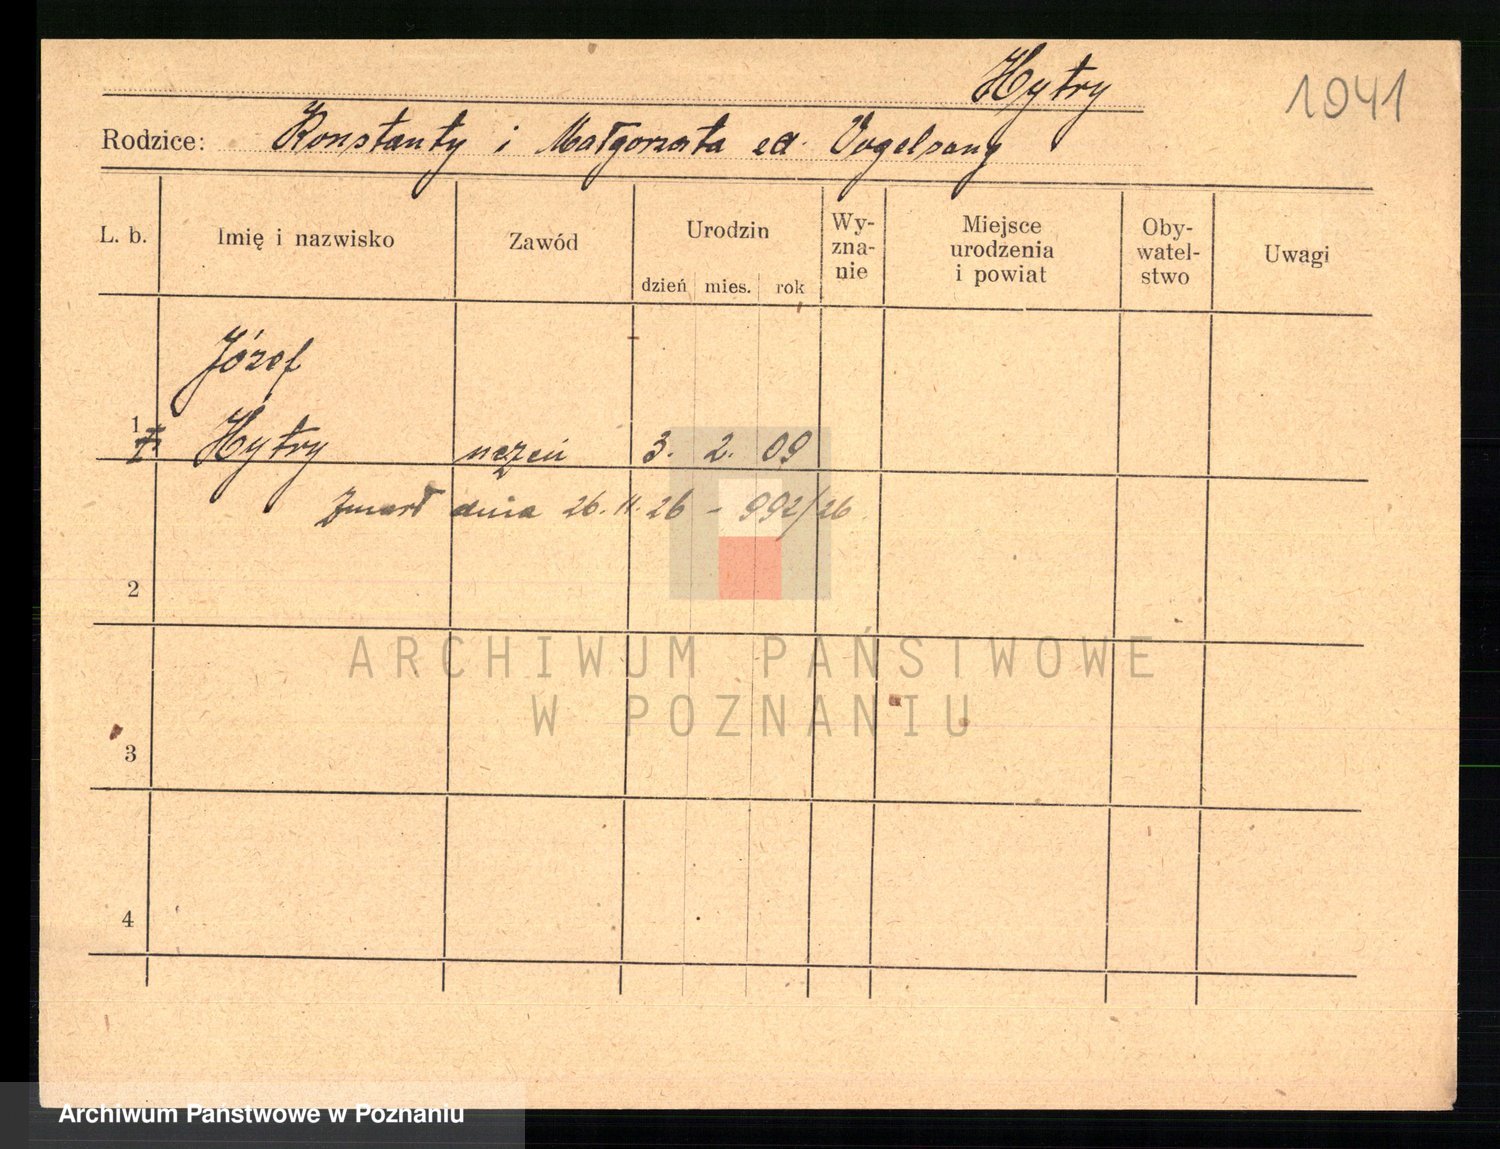 Hytry
1941
Rodzice: Konstanty i Małgorzata Vogelsang
L. b.
Imię i nazwisko
Zawód
Urodzin
dzień mies. rok
Wy-
zna-
nie
Miejsce
urodzenia
i powiat
Oby-
watel-
stwo
Uwagi
Józef
1 Hytry uczeń 3. 2. 09
Zmarł dnia 26.11.26 - 992/26
2
ARCHIWUM PAŃSTWOWE
W POZNANIU
3
4
Archiwum Państwowe w Poznaniu